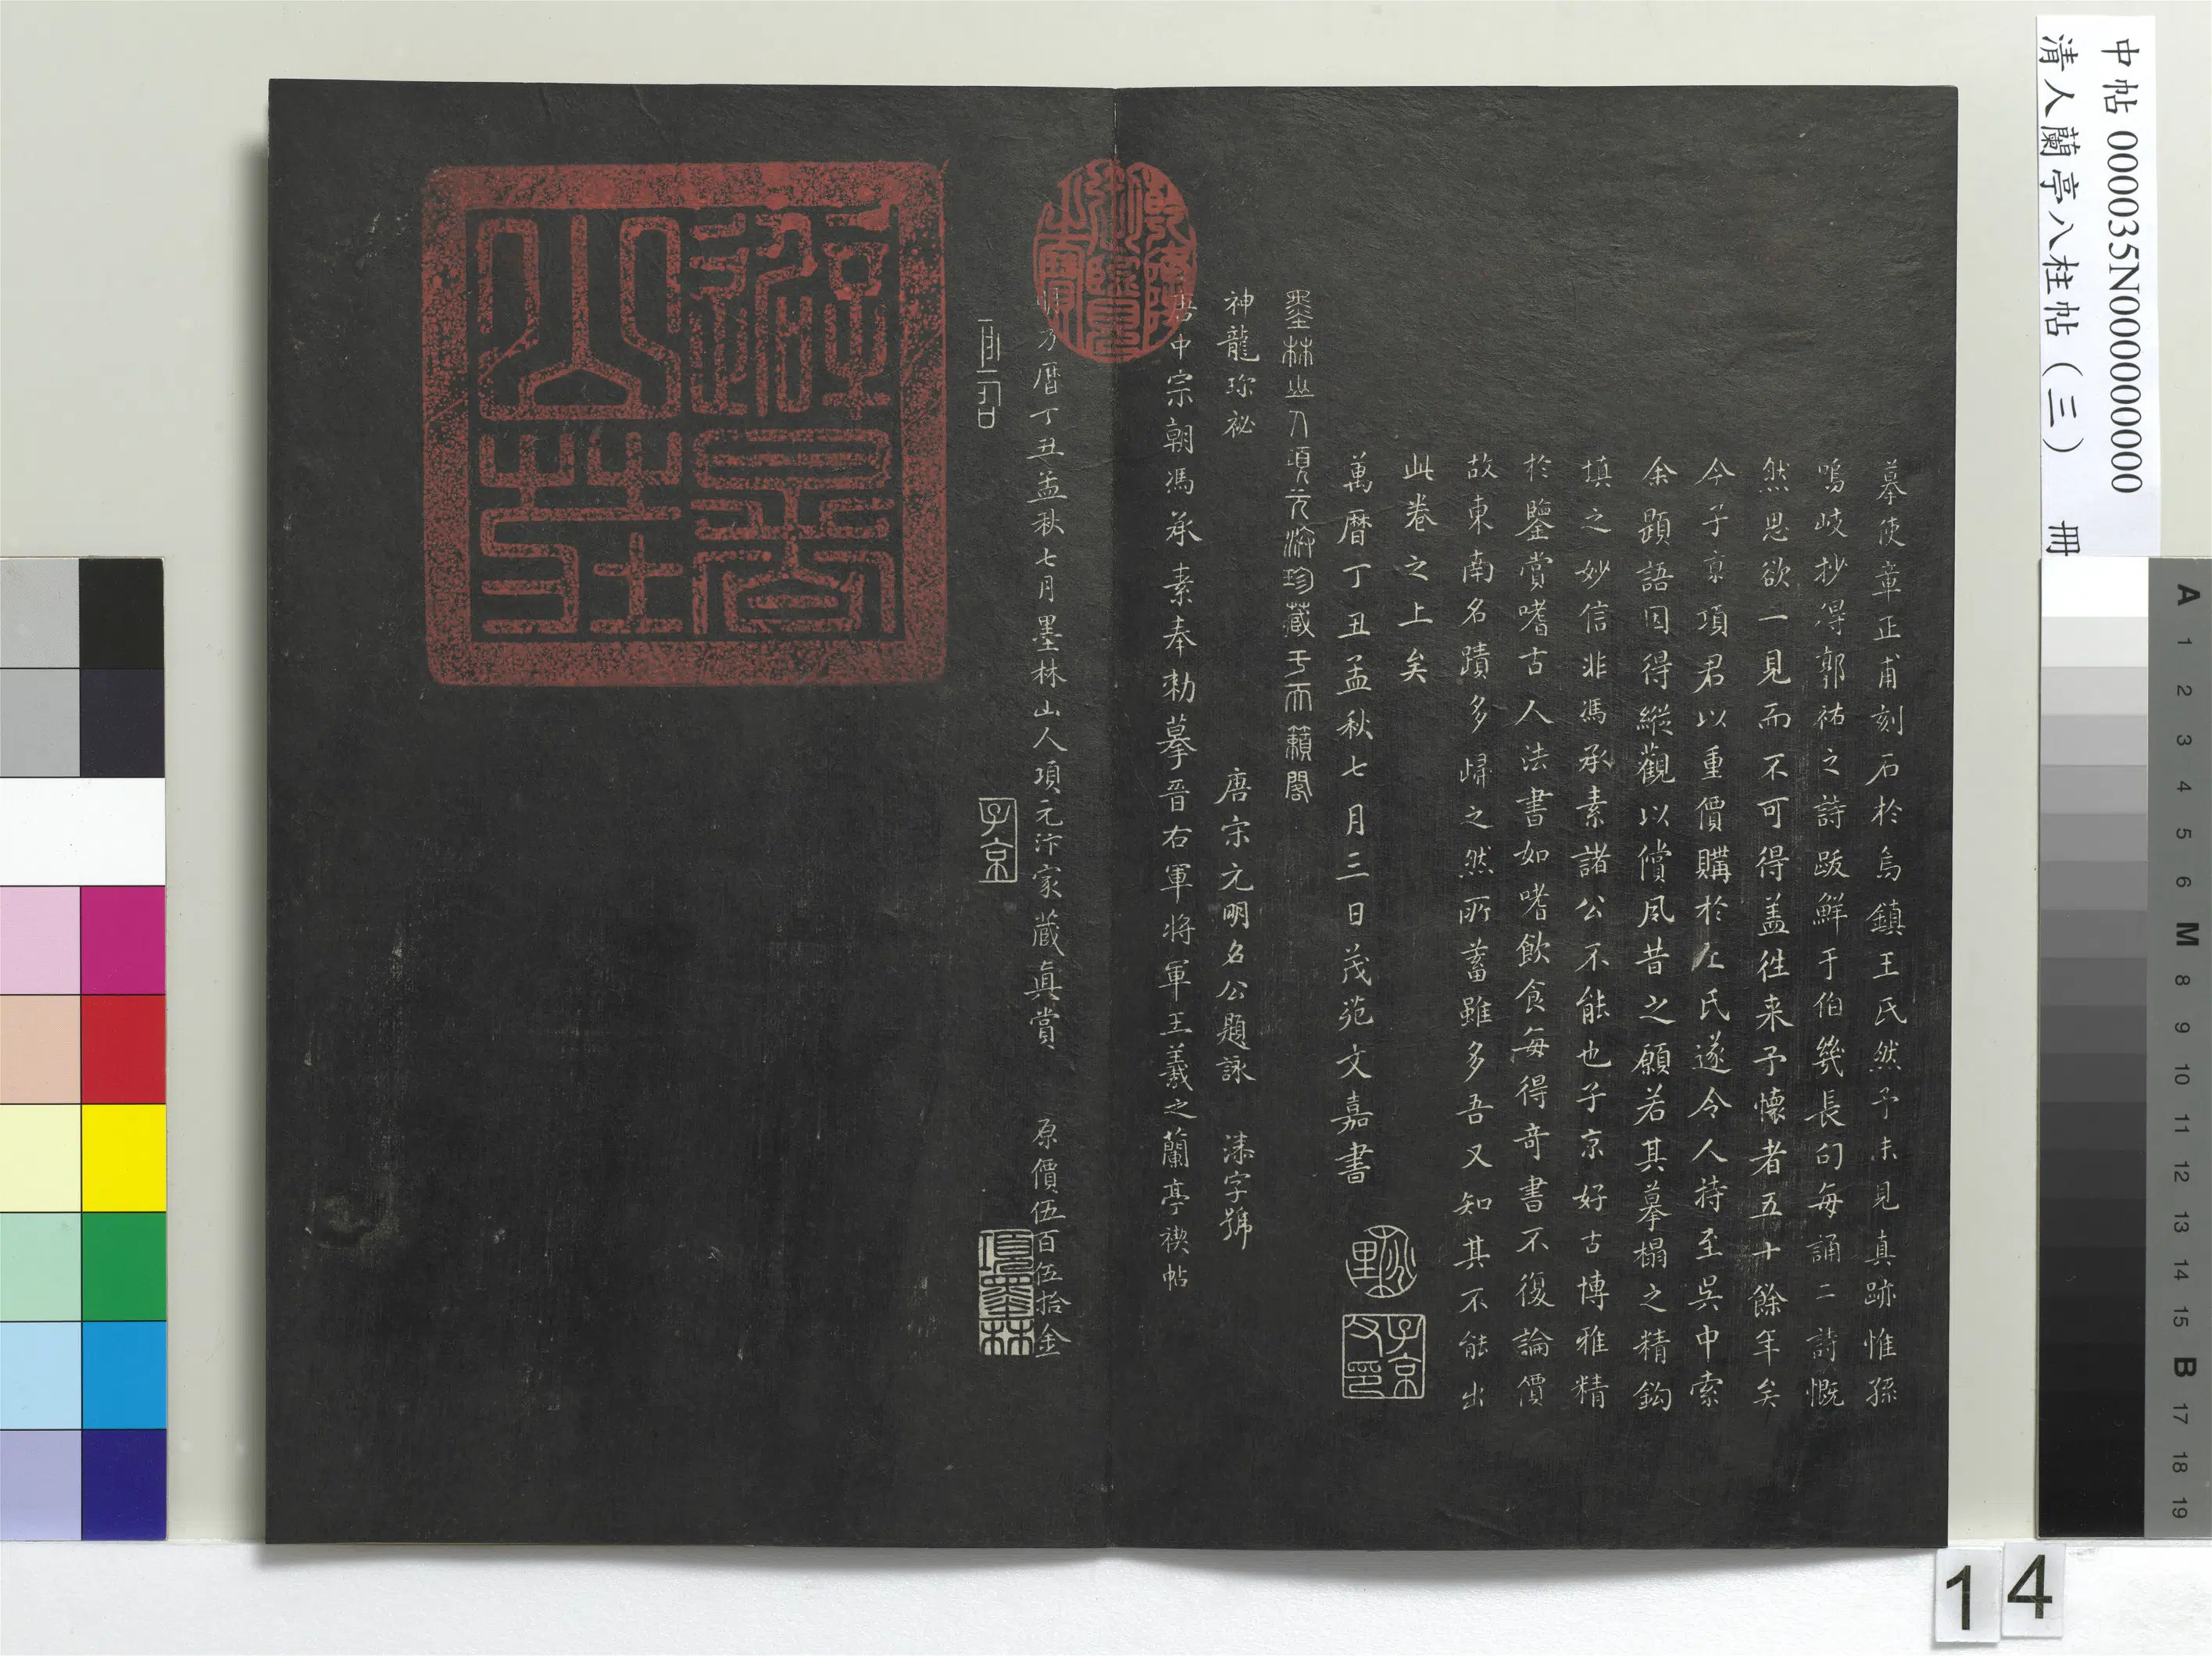 中帖 000035N000000000
清人蘭亭八柱帖（三） 冊
摹使章正甫刻石於烏鎮王氏然予未見真跡惟孫
鳴岐抄得郭祐之詩跋鮮于伯幾長句每誦二詩慨
然思欲一見而不可得盖徃来予懷者五十餘年矣
今子京項君以重價購於王氏遂令人持至吳中索
余題語因得縱觀以償夙昔之願若其摹榻之精鈎
填之妙信非馮承素諸公不能也子京好古博雅精
於鑒賞嗜古人法書如嗜飲食每得奇書不復論價
故東南名蹟多歸之然所蓄雖多吾又知其不能出
此卷之上矣
萬曆丁丑孟秋七月三日茂苑文嘉書
子京
父印
墨林山人項元汴珍藏于天籟閣
神龍珎祕 唐宋元明名公題詠 漆字號
唐中宗朝馮承素奉勅摹晉右軍將軍王羲之蘭亭禊帖
明万曆丁丑孟秋七月墨林山人項元汴家藏真賞 原價伍百伍拾金
子京
項墨林
14
A 1 2 3 4 5 6 M 8 9 10 11 12 13 14 15 B 17 18 19